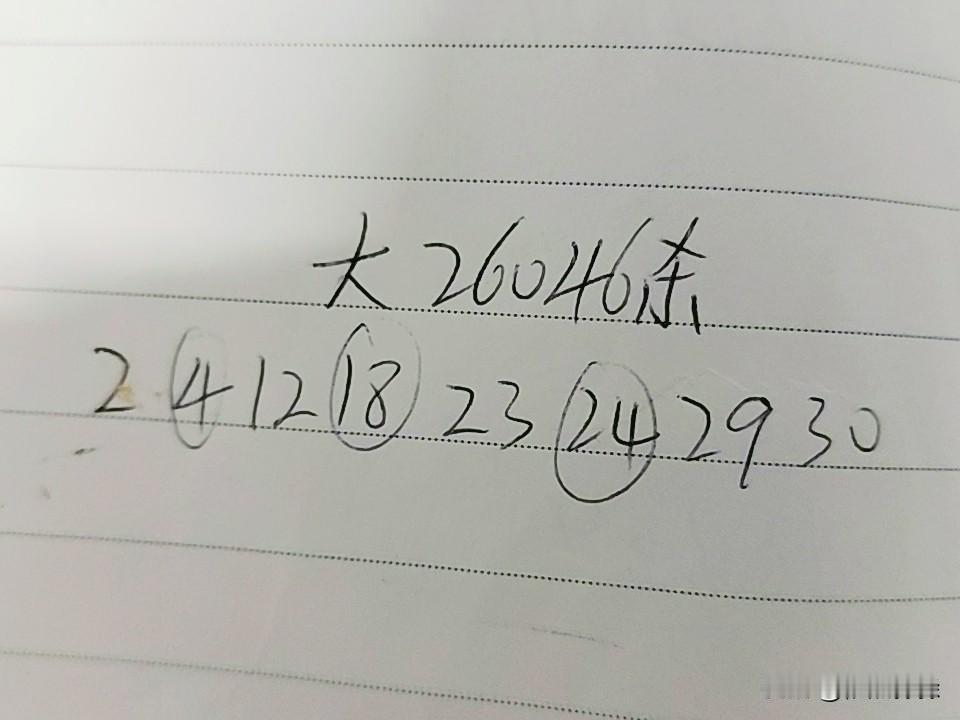 大26046杀
2 4 12 18 23 24 29 30